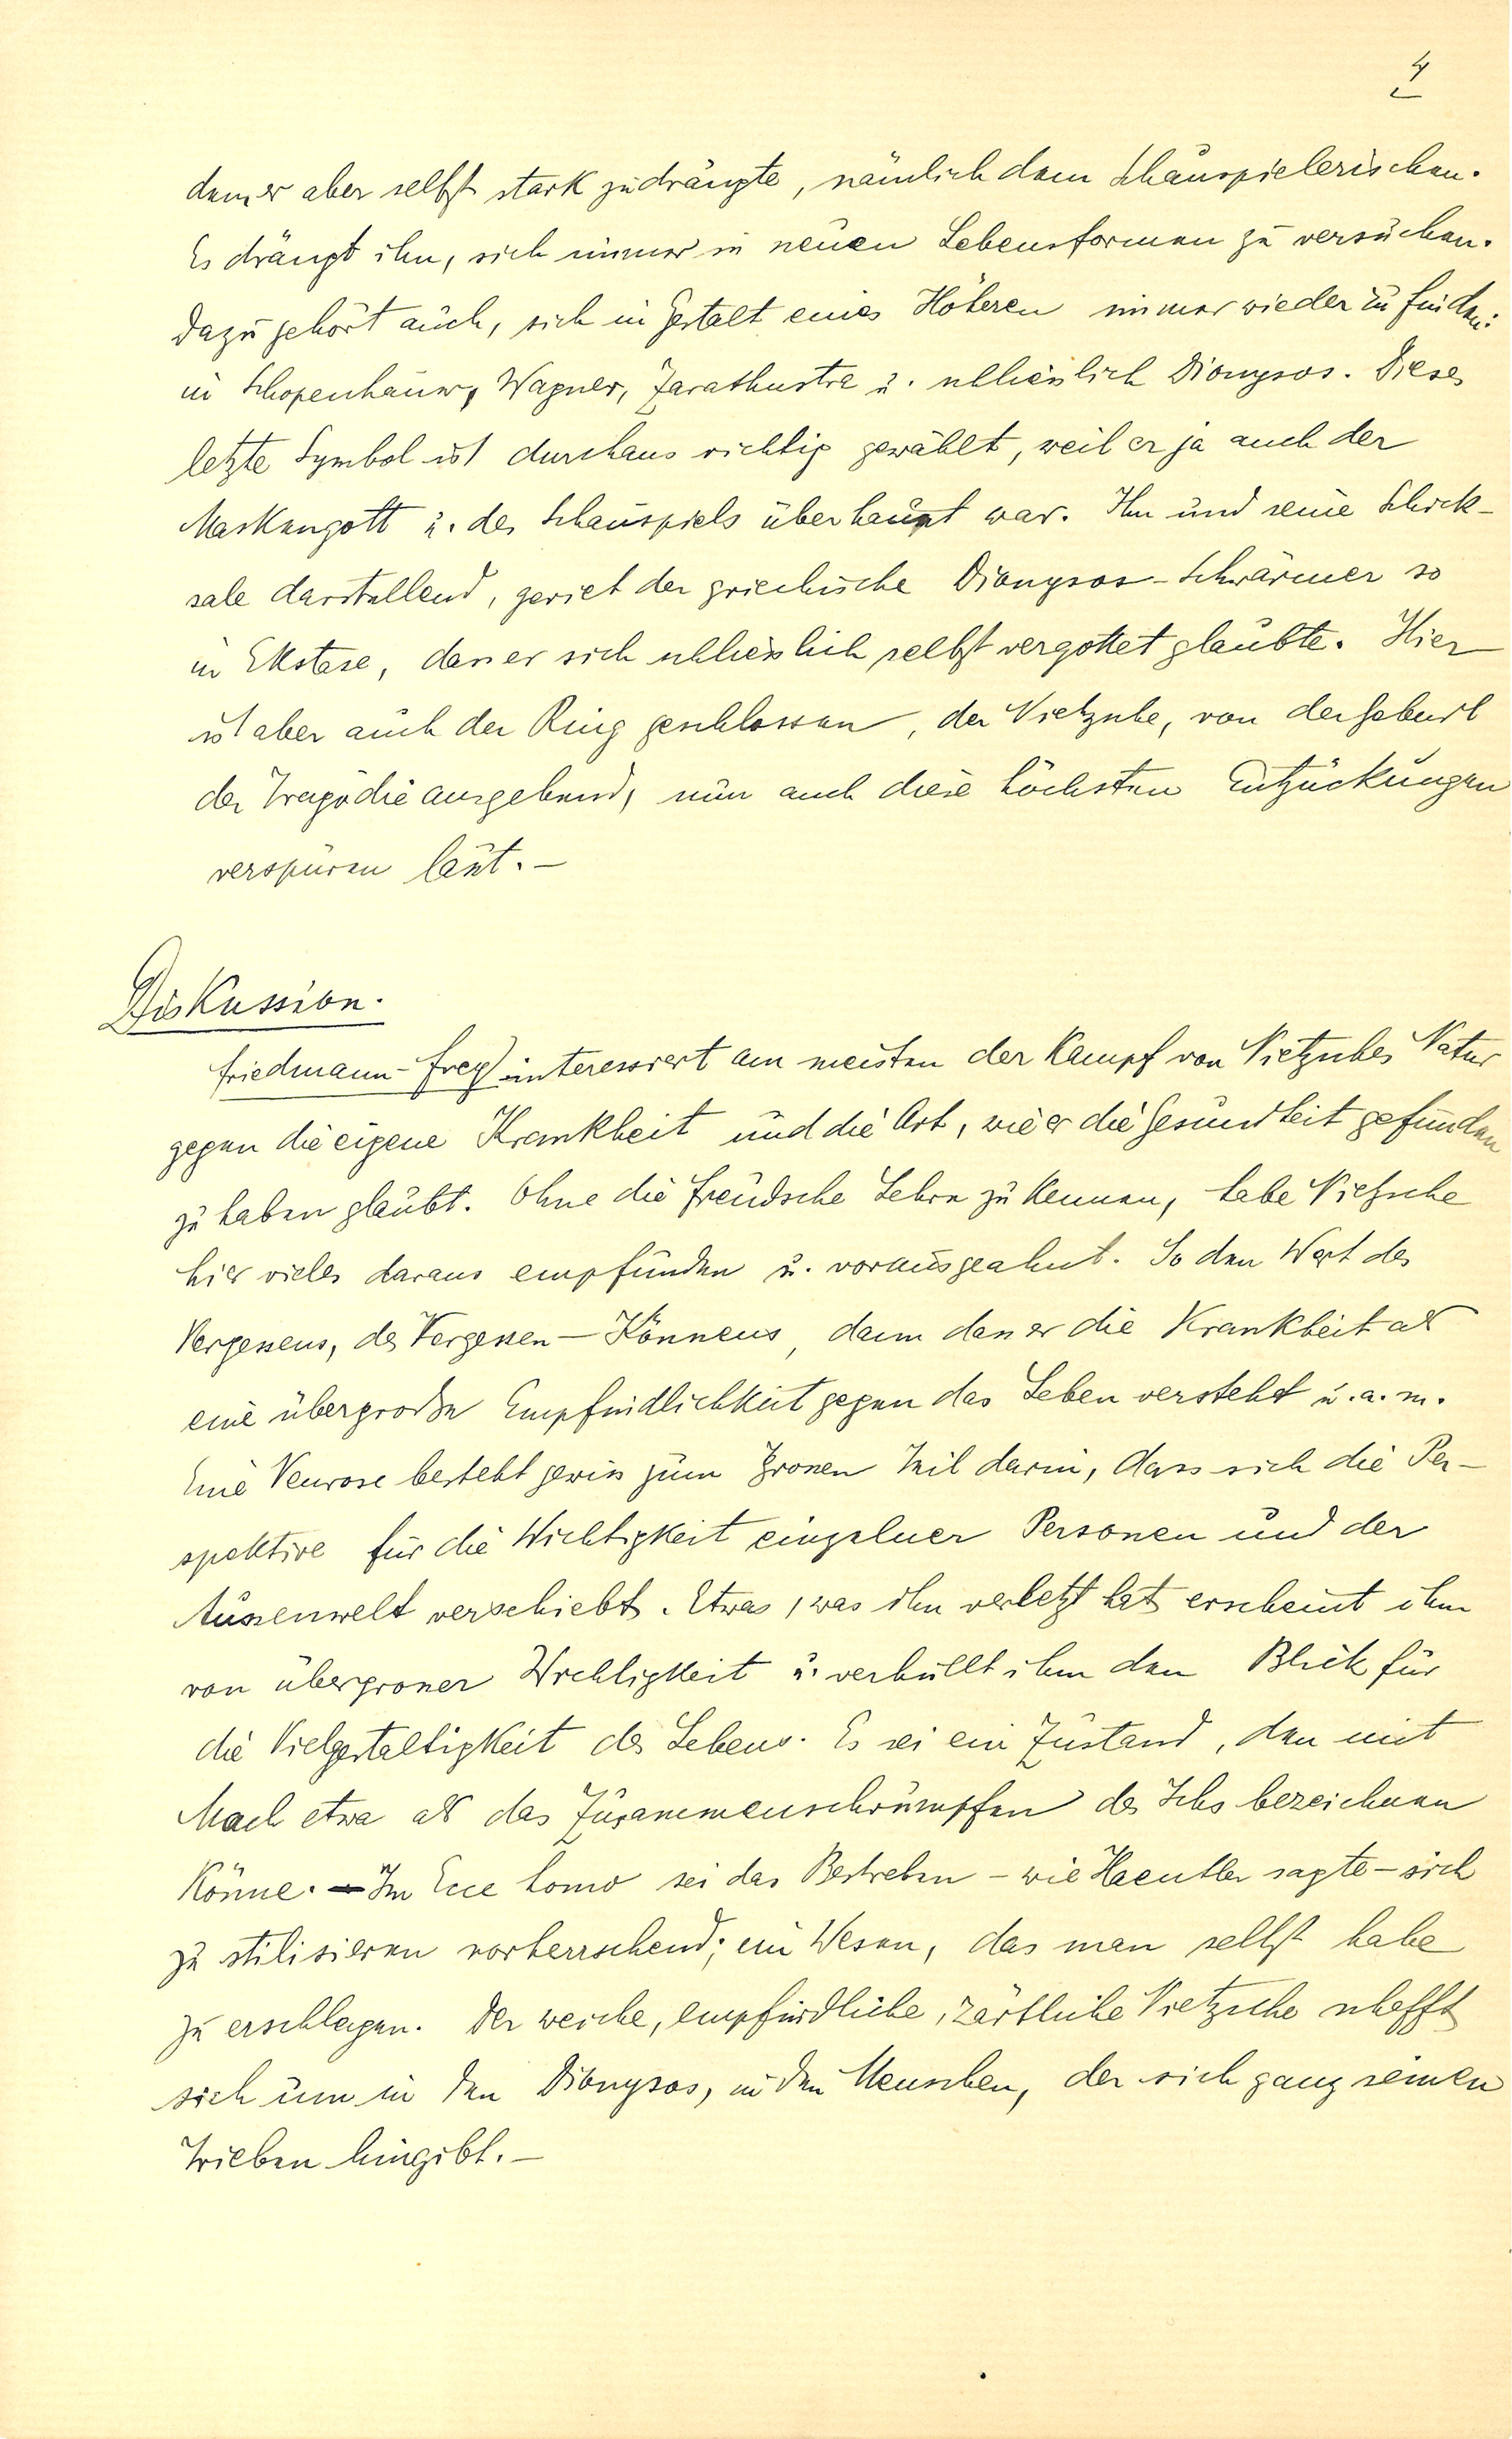 4
dem er aber selbst stark zudrängte, nämlich dem Schauspielerischen.
Es drängt ihn, sich immer in neuen Lebensformen zu versuchen.
Dazu gehört auch, sich in Gestalt eines Höheren immer wieder zu finden:
in Schopenhauer, Wagner, Zarathustra u. schliesslich Dionysos. Dieses
letzte Symbol ist durchaus richtig gewählt, weil er ja auch der
Maskengott u. des Schauspiels überhaupt war. Ihn und seine Schick-
sale darstellend, geriet der griechische Dionysos-Schwärmer so
in Ekstase, dass er sich schliesslich selbst vergottet glaubte. Hier
ist aber auch der Ring geschlossen, der Nietzsche, von der Geburt
der Tragödie ausgehend, nun auch diese höchsten Entzückungen
verspüren lässt. –
Diskussion.
Friedmann-Frey) interessiert am meisten der Kampf von Nietzsches Natur
gegen die eigene Krankheit und die Art, wie er die Gesundheit gefunden
zu haben glaubt. Ohne die Freudsche Lehre zu kennen, habe Nietzsche
hier vieles daraus empfunden u. vorausgeahnt. So den Wert des
Vergessens, des Vergessen-Könnens, dann dass er die Krankheit als
eine übergroße Empfindlichkeit gegen das Leben versteht u.a.m.
Eine Neurose besteht gewiss zum grossen Teil darin, dass sich die Per-
spektive für die Wichtigkeit einzelner Personen und der
Aussenwelt verschiebt. Etwas, was ihn verletzt hat, erscheint ihm
von übergrosser Wichtigkeit u. verhüllt ihm den Blick für
die Vielgestaltigkeit des Lebens. Es sei ein Zustand, den mit
Mach etwa als das Zusammenschrumpfen des Ichs bezeichnen
könne. – Im Ecce homo sei das Bestreben – wie Haeutler sagte – sich
zu stilisieren vorherrschend; ein Wesen, das man selbst habe
zu erschlagen. Der weiche, empfindliche, zärtliche Nietzsche schafft
sich um in den Dionysos, in den Menschen, der sich ganz seinen
Trieben hingibt. –